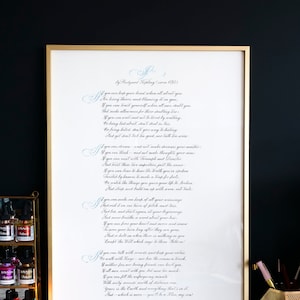 If
by Rudyard Kipling (circa 1895)
If you can keep your head when all about you
Are losing theirs and blaming it on you,
If you can trust yourself when all men doubt you,
But make allowance for their doubting too;
If you can wait and not be tired by waiting,
Or being lied about, don't deal in lies,
Or being hated, don't give way to hating,
And yet don't look too good, nor talk too wise:
If you can dream - and not make dreams your master;
If you can think - and not make thoughts your aim;
If you can meet with Triumph and Disaster
And treat those two impostors just the same;
If you can bear to hear the truth you've spoken
Twisted by knaves to make a trap for fools,
Or watch the things you gave your life to, broken,
And stoop and build 'em up with worn-out tools:
If you can make one heap of all your winnings
And risk it on one turn of pitch-and-toss,
And lose, and start again at your beginnings
And never breathe a word about your loss;
If you can force your heart and nerve and sinew
To serve your turn long after they are gone,
And so hold on when there is nothing in you
Except the Will which says to them: 'Hold on!'
If you can talk with crowds and keep your virtue,
Or walk with Kings - nor lose the common touch,
If neither foes nor loving friends can hurt you,
If all men count with you, but none too much;
If you can fill the unforgiving minute
With sixty seconds' worth of distance run,
Yours is the Earth and everything that's in it,
And - which is more - you'll be a Man, my son!